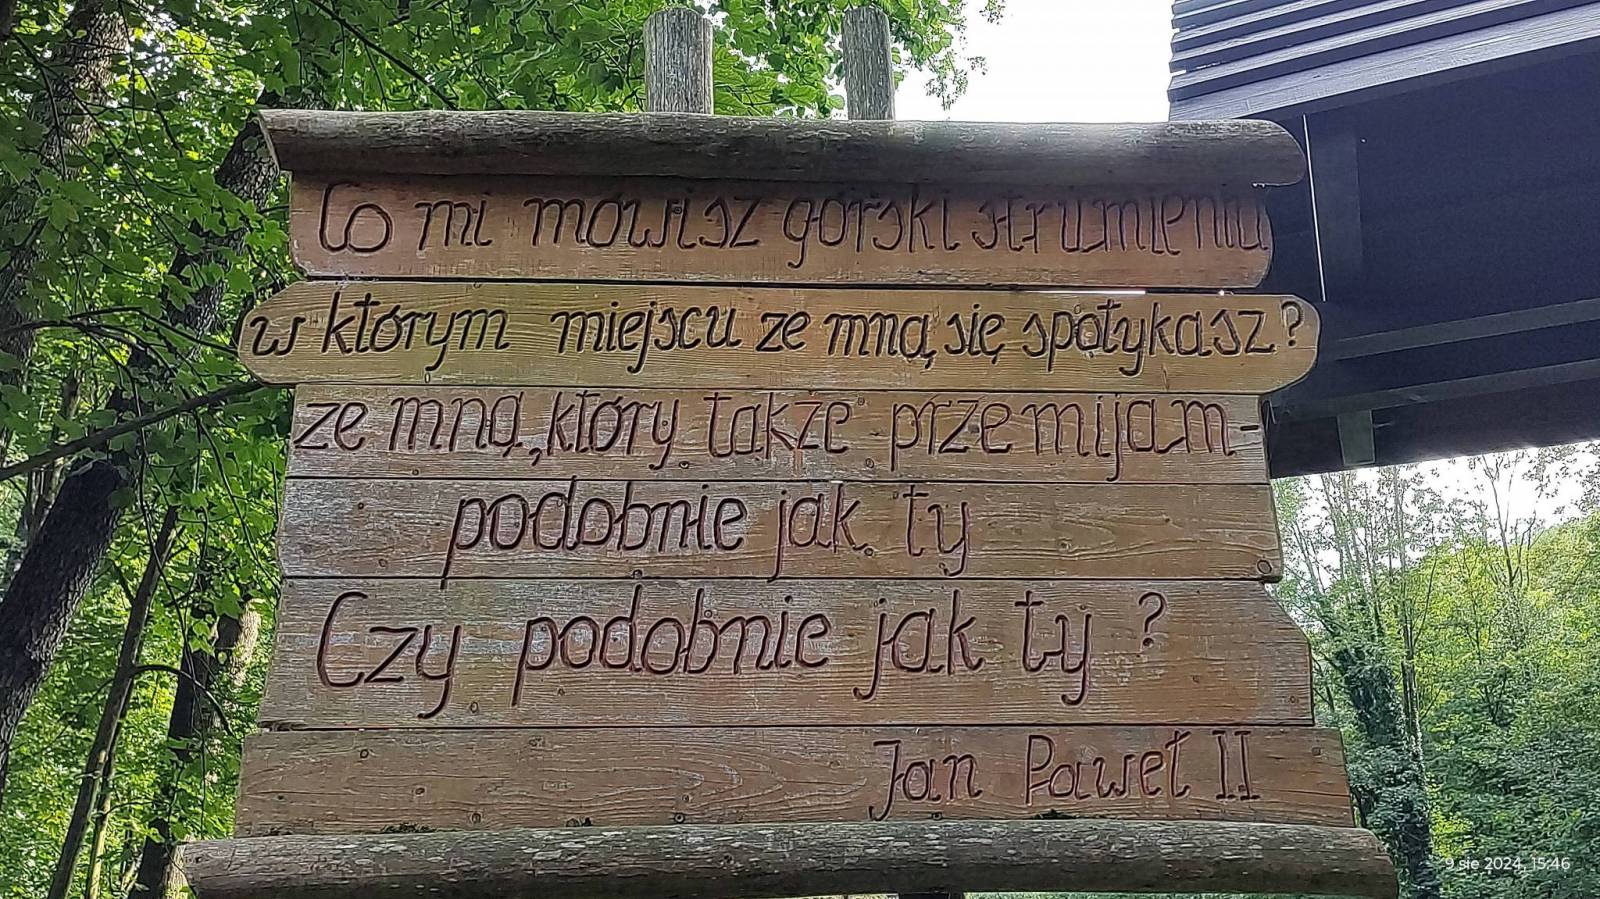 Co mi mówisz górski strumieniu
w którym miejscu ze mną się spotykasz?
ze mną, który także przemijam-
podobnie jak ty
Czy podobnie jak ty ?
Jan Paweł II
9 sie 2024, 15:46